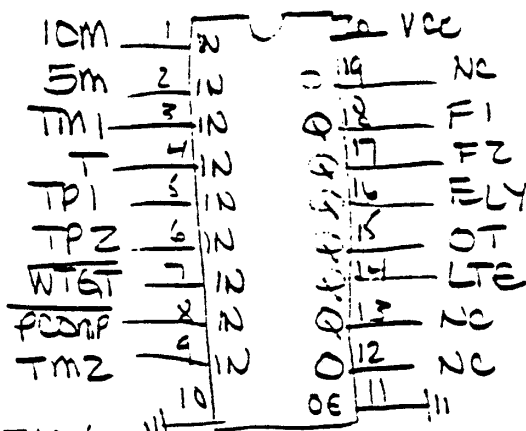 10M 1 IN VCC
5M 2 IN 19 NC
TM1 3 IN Q 18 F1
T 4 IN 17 F2
TP1 5 IN 16 ELY
TP2 6 IN 15 OT
WTGT 7 IN 14 LTE
PCOMP 8 IN Q 13 NC
TM2 9 IN O 12 NC
10 OE 11